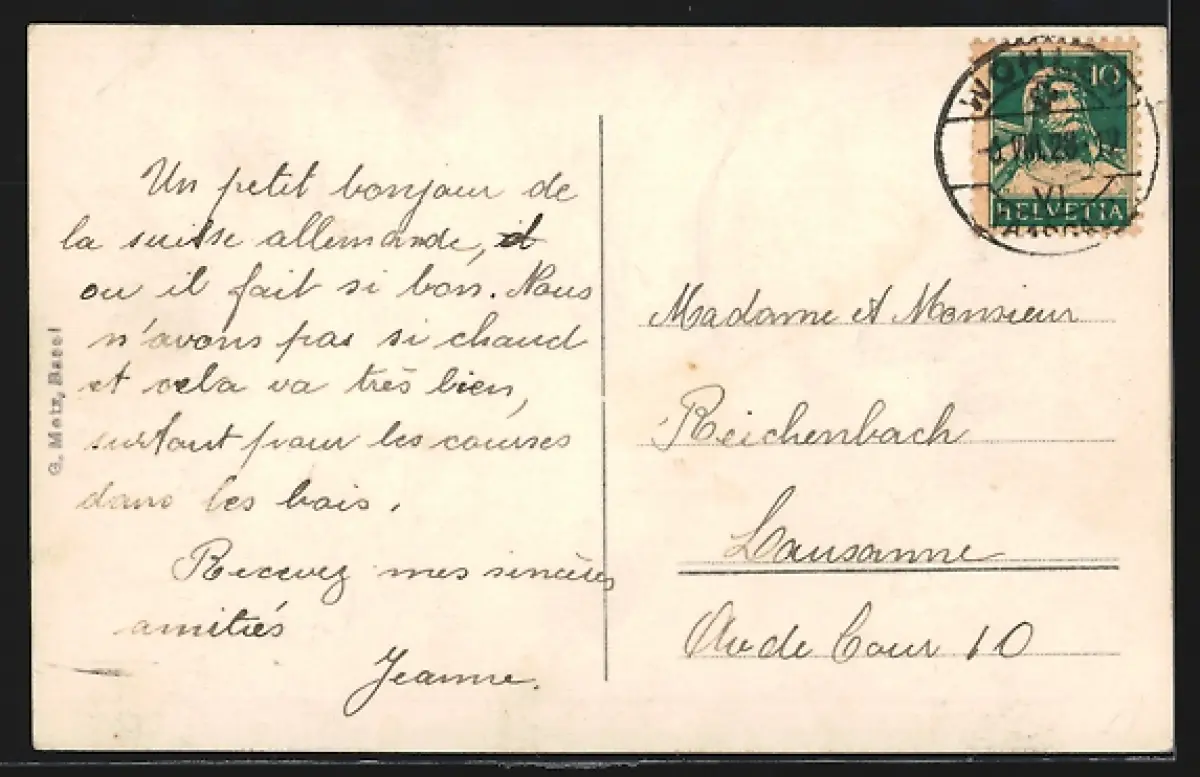 Un petit bonjour de
la suisse allemande,
ou il fait si bon. Nous
n'avons pas si chaud
et cela va très bien,
surtout pour les courses
dans les bois.
Recevez mes sincères
amitiés
Jeanne.
G. Metz, Basel
10
HELVETIA
VIII.28
VI
Madame et Monsieur
Reichenbach
Lausanne
Av de Cour 10